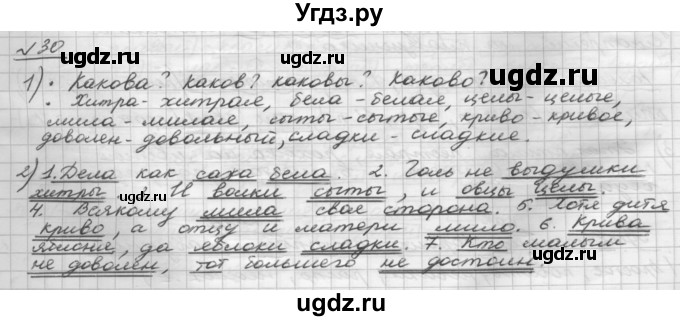 Угдз.ру
ugdz.ru ugdz.ru
№30
1) • Какова? Каков? Каковы? Каково?
• Хитра - хитрая, бела - белая, целы - целые,
мила - милая, сыты - сытые, криво - кривое,
доволен - довольный, сладки - сладкие.
ugdz.ru ugdz.ru
2) 1. Дела как сажа бела. 2. Голь на выдумки
хитра. 3. И волки сыты, и овцы целы.
4. Всякому мила своя сторона. 5. Хотя дитя
криво, а отцу и матери мило. 6. Крива
яблоня, да яблоки сладки. 7. Кто малым
не доволен, тот большего не достоин.
ugdz.ru ugdz.ru
ugdz.ru